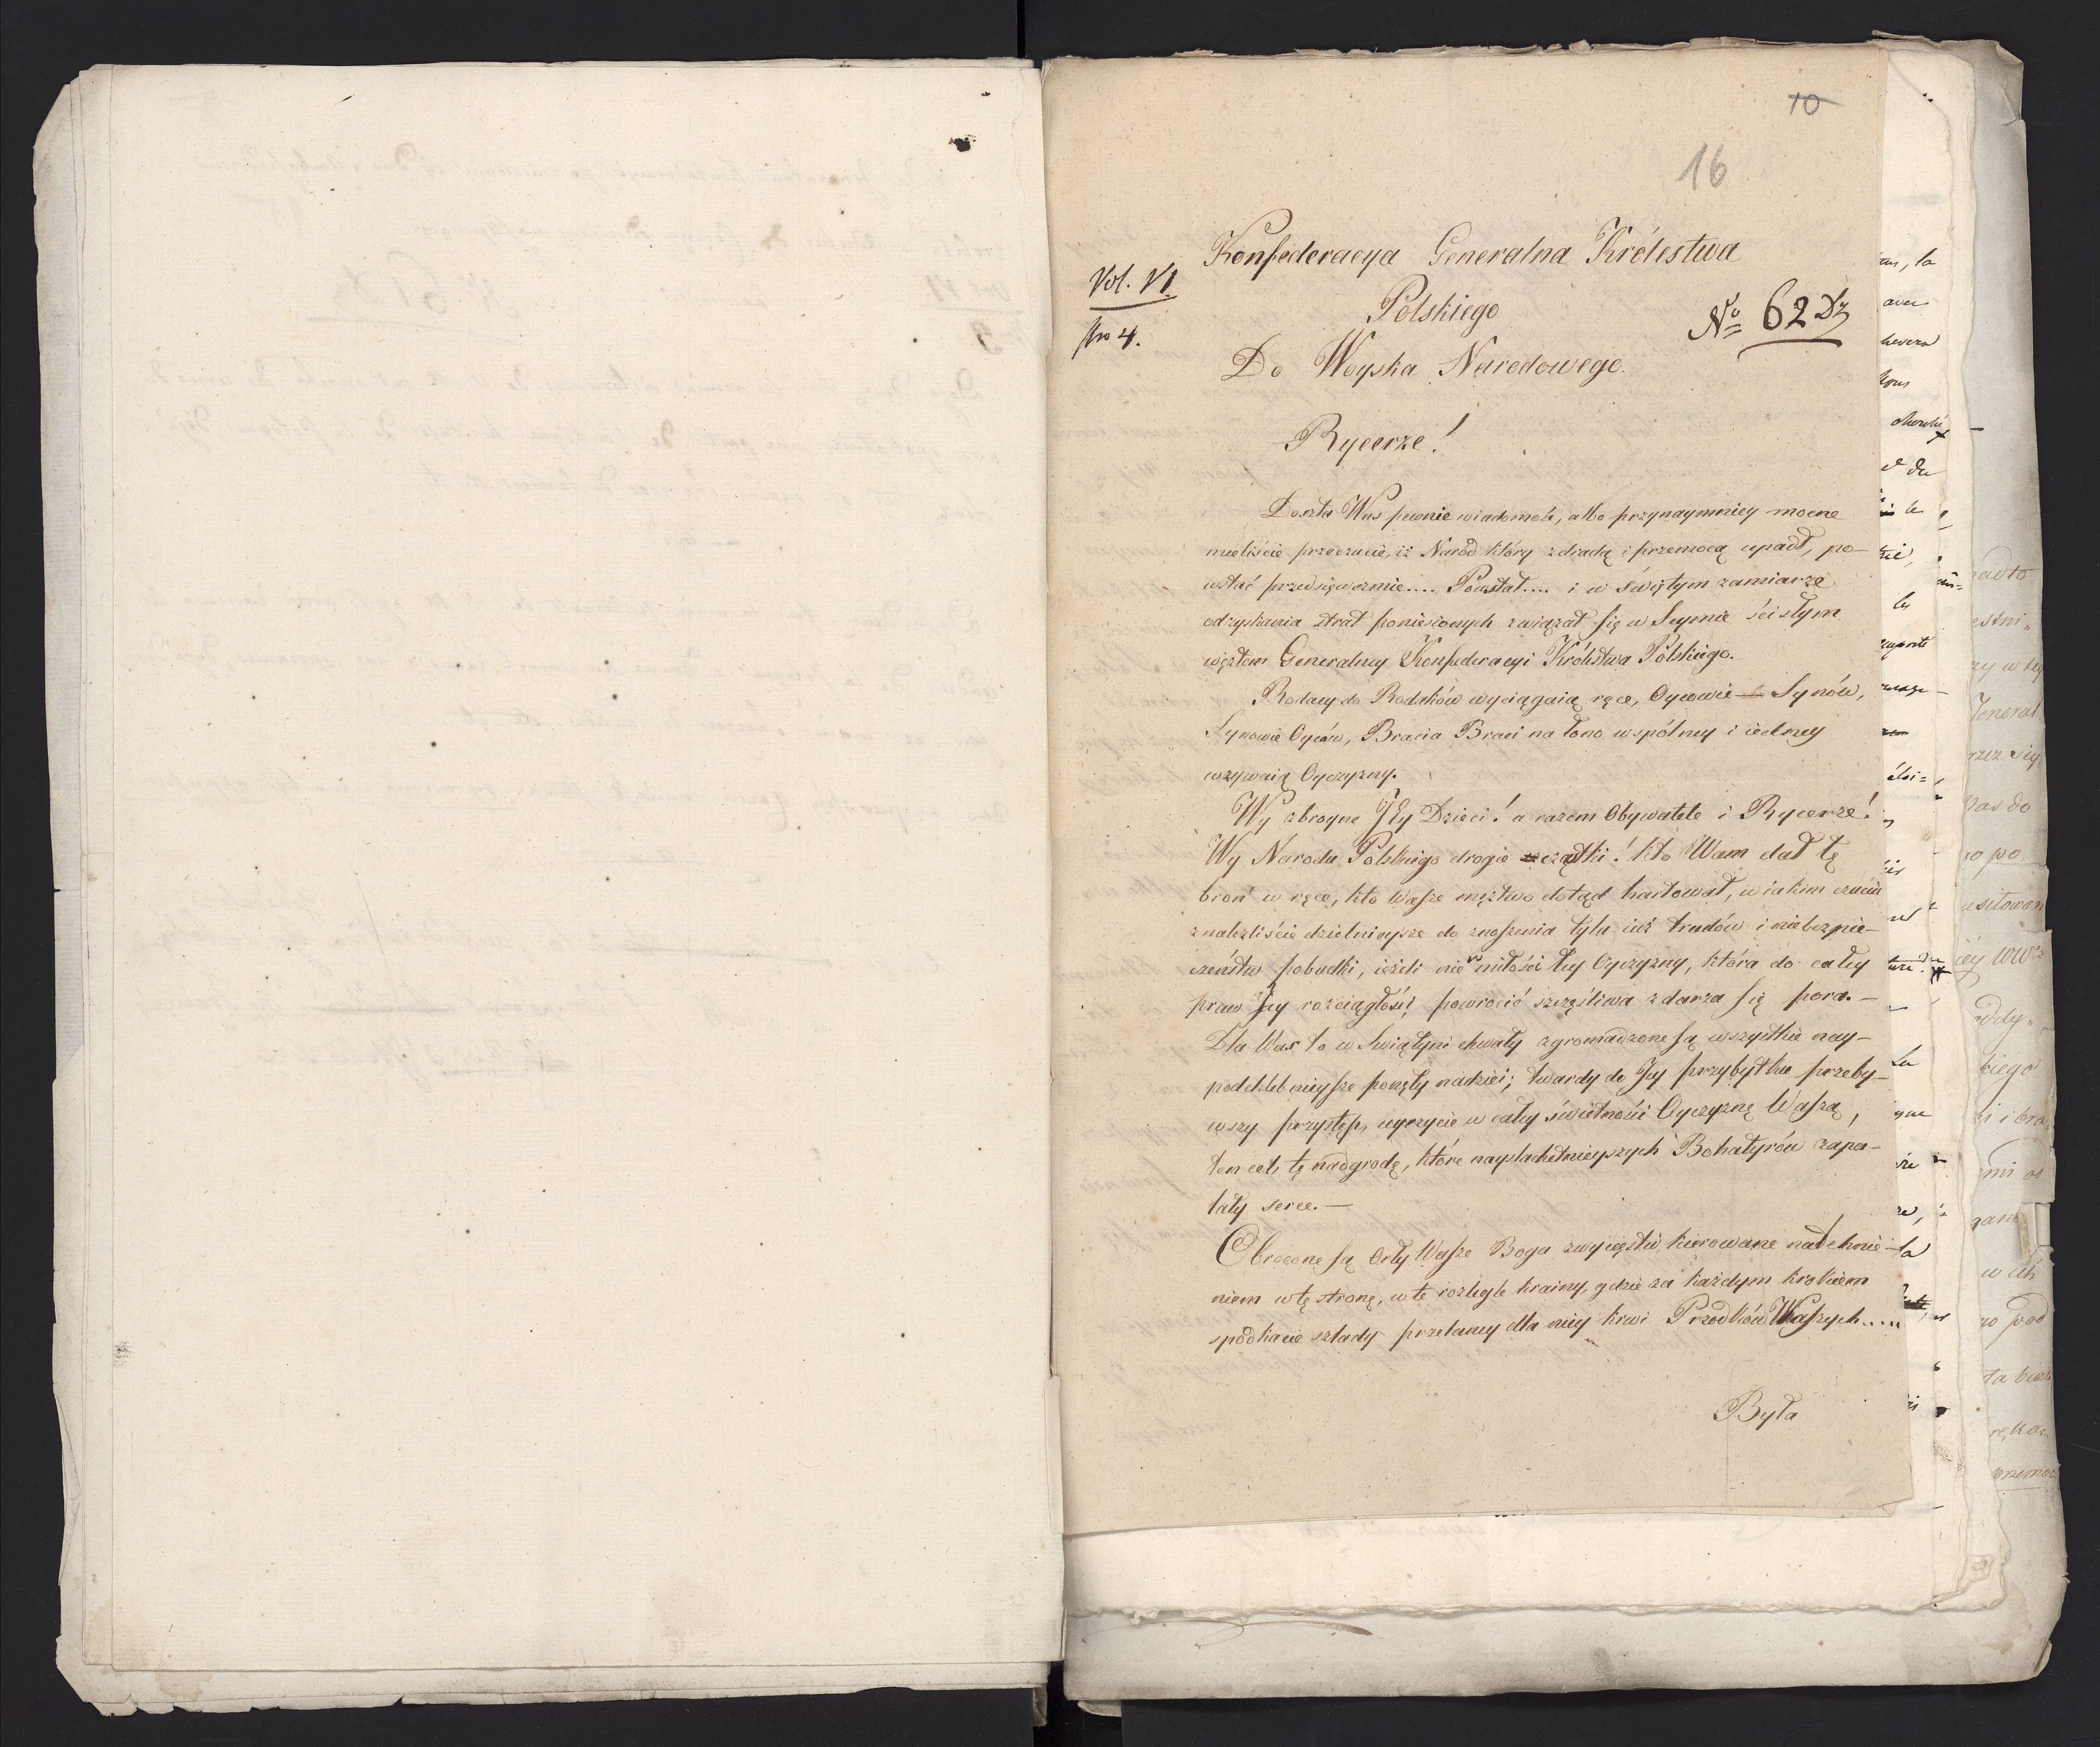 10
16
Konfederacya Generalna Królestwa
Polskiego
Vol. VI.
str 4.
No 62 Dz
Do Woyska Narodowego.
Rycerze!
Doszła Was pewnie wiadomość, albo przynaymniey mocne
mieliście przeczucie, iż Naród który zdradą i przemocą upadł, po-
wstać przedsięweźmie.... Powstał.... i w świętym zamiarze
odzyskania strat poniesionych związał się w Seymie ścisłym
węzłem Generalney Konfederacyi Królestwa Polskiego.
Rodacy do Rodaków wyciągaią ręce, Oycowie — Synów,
Synowie Oyców, Bracia Braci na łono wspólney i iedney
wzywaią Oyczyzny.
Wy zbroyne Jey Dzieci! a razem Obywatele i Rycerze!
Wy Narodu Polskiego drogie szczątki! kto Wam dał tę
broń w ręce, kto Wasze męztwo dotąd hartował, w iakim czuciu
znaleźliście dzielnieysze do znoszenia tylu iuż trudów i niebezpie-
czeństw pobudki, ieżeli nie w miłości tey Oyczyzny, która do całey
praw Jey rozciągłości powrócić szczęśliwa zdarza się pora. —
Dla Was to w Swiątyni chwały zgromadzone są wszystkie nay-
podchlebnieysze ponęty nadziei; twardy do Jey przybytku przeby-
wszy przystęp, uyrzycie w całey świetności Oyczyznę Waszą,
ten cel, tę nadgrodę, które nayszlachetnieyszych Bohatyrów zapa-
lały serce. —
Obrócone są Orły Wasze Boga zwycięstw kierowane natchnie-
niem w tę stronę, w te rozległe krainy, gdzie za każdym krokiem
spodkacie szlady przelaney dla niey krwi Przodków Waszych.....
Była